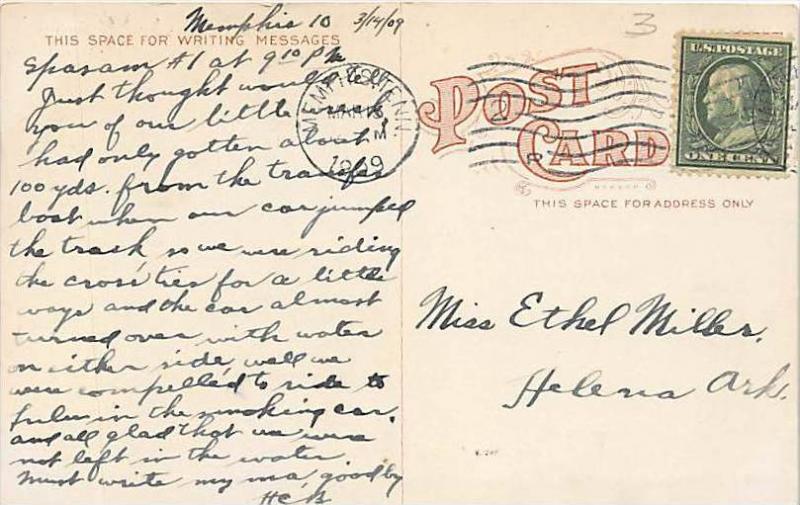 Memphis 10 3/14/09
THIS SPACE FOR WRITING MESSAGES
at 9 10 PM
Just thought would tell
you of our little wreck
had only gotten about
100 yds. from the transfer
boat when our car jumped
the track, so we were riding
the cross ties for a little
ways and the car almost
turned over with water
on either side, well we
were compelled to ride to
in the smoking car.
and all glad that we were
not left in the water
Must write my ma, goodby
HCB
3
MEMPHIS, TENN.
MAR 15
M
1909
POST
CARD
THIS SPACE FOR ADDRESS ONLY
U.S. POSTAGE
ONE CENT
Miss Ethel Miller.
Helena Ark.